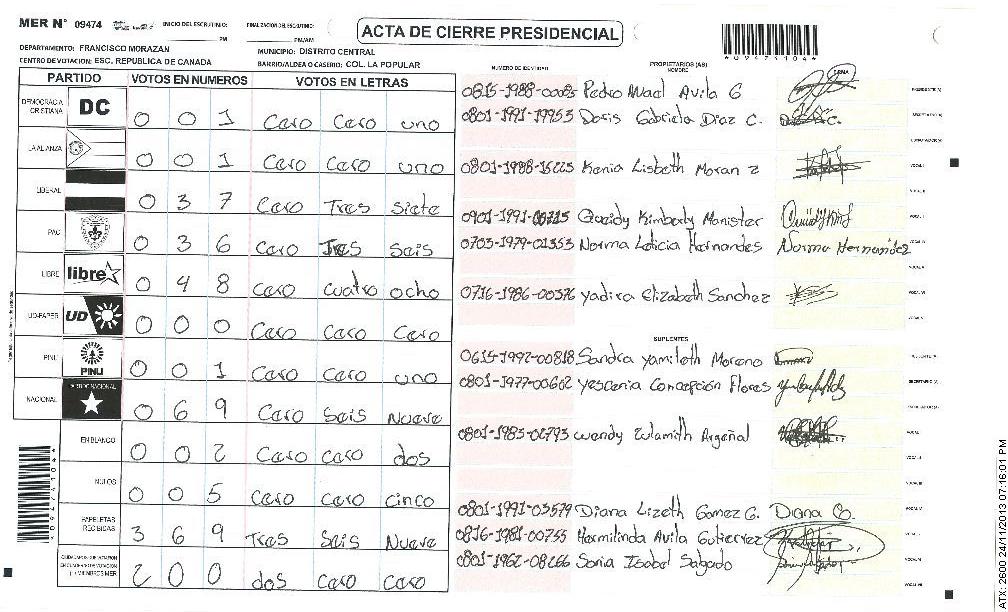 MER N° 09474 INICIO DEL ESCRUTINIO: PM FINALIZACION DEL ESCRUTINIO: PM/AM
ACTA DE CIERRE PRESIDENCIAL
*09474104*
DEPARTAMENTO: FRANCISCO MORAZAN MUNICIPIO: DISTRITO CENTRAL
CENTRO DE VOTACION: ESC. REPUBLICA DE CANADA BARRIO/ALDEA O CASERIO: COL. LA POPULAR
PARTIDO VOTOS EN NUMEROS VOTOS EN LETRAS
DEMOCRACIA CRISTIANA DC 0 0 1 Cero Cero uno
LA ALIANZA 0 0 1 Cero Cero uno
LIBERAL 0 3 7 Cero Tres Siete
PAC 0 3 6 Cero Tres Seis
LIBRE libre 0 4 8 Cero cuatro ocho
UD-FAPER UD 0 0 0 Cero Cero Cero
PINU PINU 0 0 1 Cero Cero uno
NACIONAL PARTIDO NACIONAL 0 6 9 Cero Seis Nueve
EN BLANCO 0 0 2 Cero cero dos
NULOS 0 0 5 Cero Cero cinco
PAPELETAS RECIBIDAS 3 6 9 Tres Seis Nueve
2 0 0 dos Cero Cero
NUMERO DE IDENTIDAD PROPIETARIOS (AS) NOMBRE FIRMA
0815-1988-00085 Pedro Avila G
0801-1991-19953 Doris Gabriela Diaz C.
0801-1988-16225 Kenia Lisbeth Moran Z
0901-1991-00715 Kimberly Manister
0703-1979-01353 Norma Leticia Hernandes Norma Hernandez
0716-1986-00376 Yadira Elizabeth Sanchez
SUPLENTES
0615-1992-00818 Sandra Yamileth Moreno
0801-1977-00602 Yescenia Concepción Flores
0801-1983-02793 Wendy Zulamith Argeñal
0801-1991-03579 Diana Lizeth Gomez G. Diana G.
0816-1981-00755 Hermilinda Avila Gutierrez
0801-1962-08266 Sonia Isabel Salgado
*09474104*
ATX: 2500 24/11/2013 07:16:01 PM